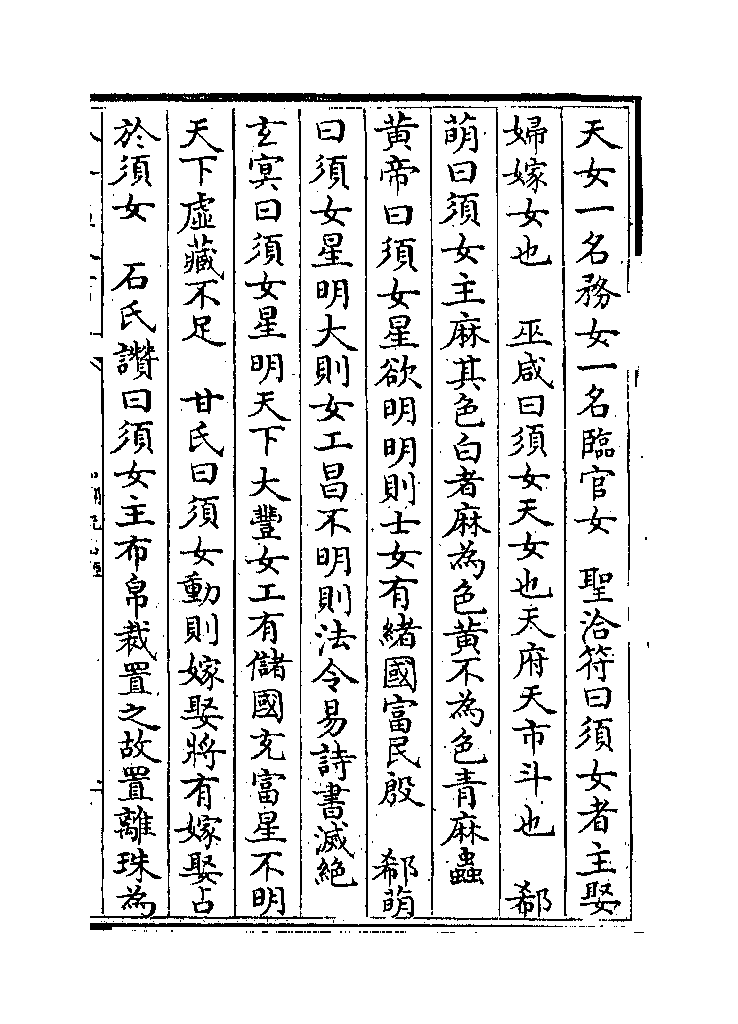 天女一名務女一名臨官女　聖洽符曰須女者主娶
婦嫁女也　巫咸曰須女天女也天府天市斗也　郗
萌曰須女主麻其色白者麻為色黄不為色青麻蟲
黄帝曰須女星欲明明則士女有緒國富民殷　郗萌
曰須女星明大則女工昌不明則法令易詩書滅絶
玄冥曰須女星明天下大豐女工有儲國充富星不明
天下虛藏不足　甘氏曰須女動則嫁娶將有嫁娶占
於須女　石氏讚曰須女主布帛裁置之故置離珠為